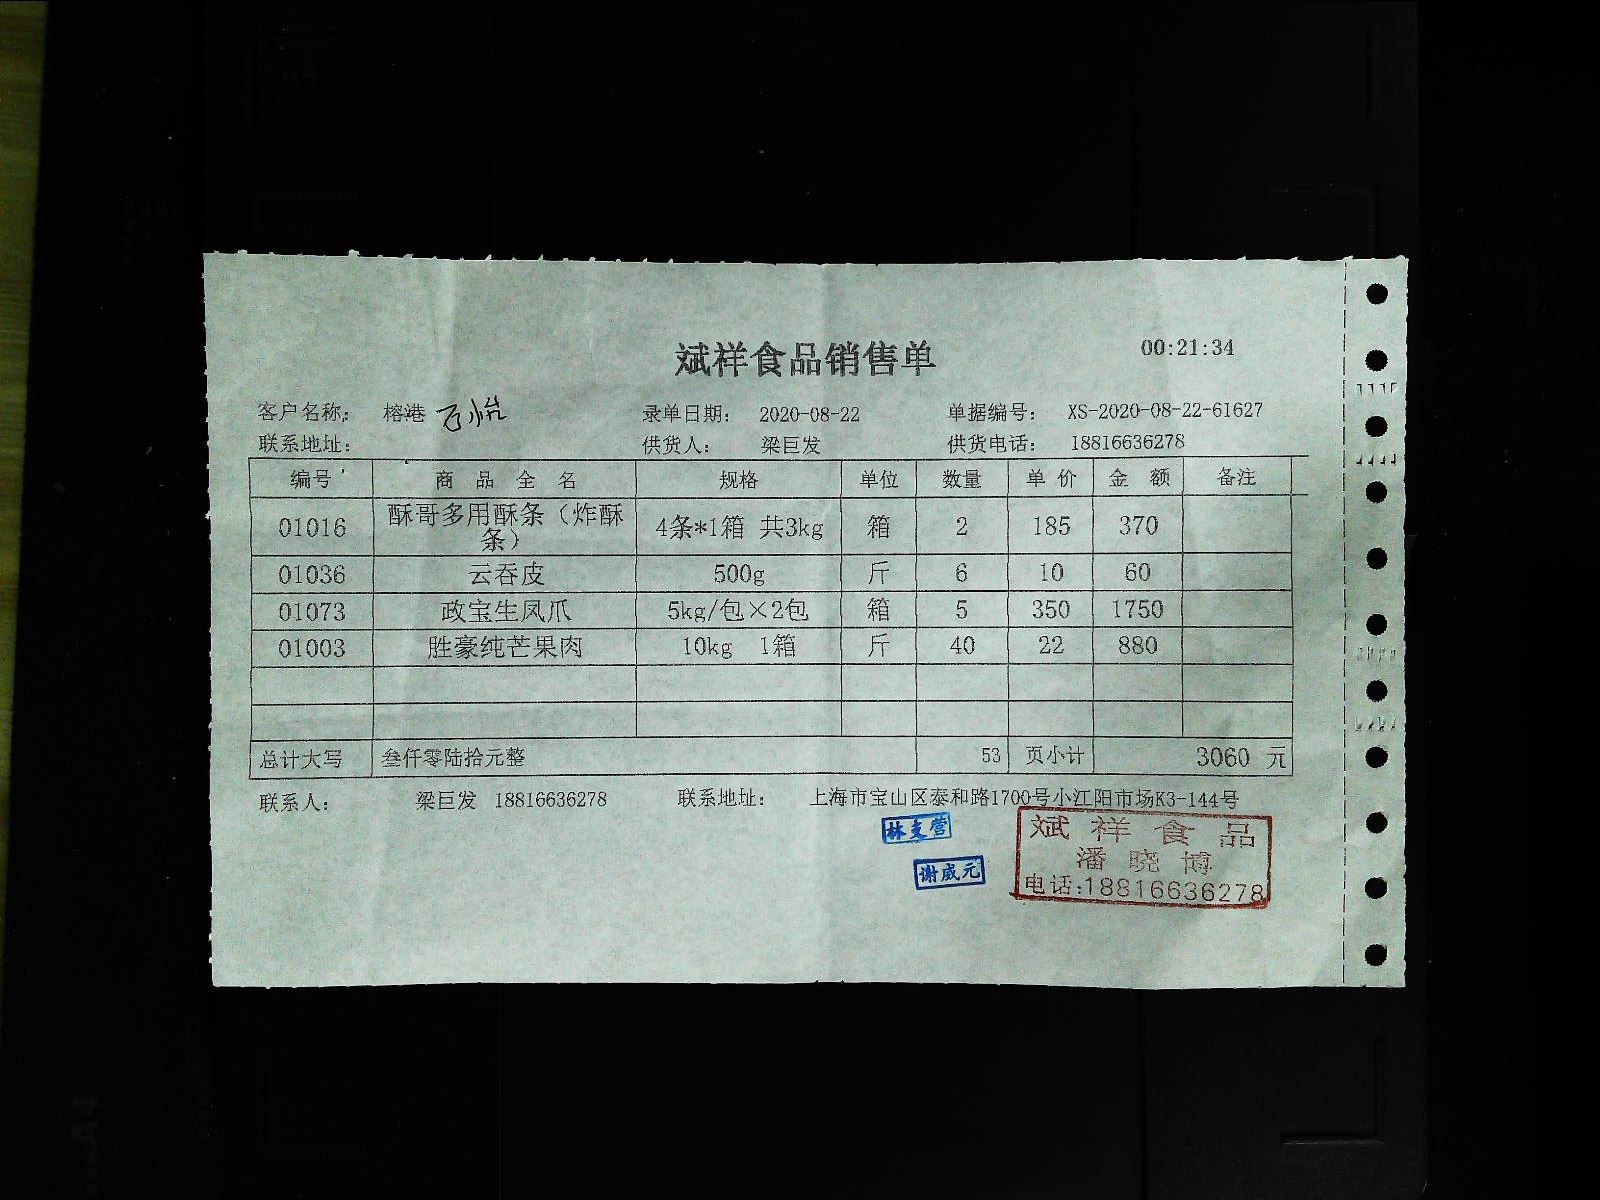 斌祥食品销售单 00:21:34
客户名称: 榕港 百怡 录单日期: 2020-08-22 单据编号: XS-2020-08-22-61627
联系地址: 供货人: 梁巨发 供货电话: 18816636278
编号 商品全名 规格 单位 数量 单价 金额 备注
01016 酥哥多用酥条（炸酥条） 4条*1箱 共3kg 箱 2 185 370
01036 云吞皮 500g 斤 6 10 60
01073 政宝生凤爪 5kg/包×2包 箱 5 350 1750
01003 胜豪纯芒果肉 10kg 1箱 斤 40 22 880
总计大写 叁仟零陆拾元整 53 页小计 3060 元
联系人: 梁巨发 18816636278 联系地址: 上海市宝山区泰和路1700号小江阳市场K3-144号
林支营
谢威元
斌祥食品
潘晓博
电话:18816636278